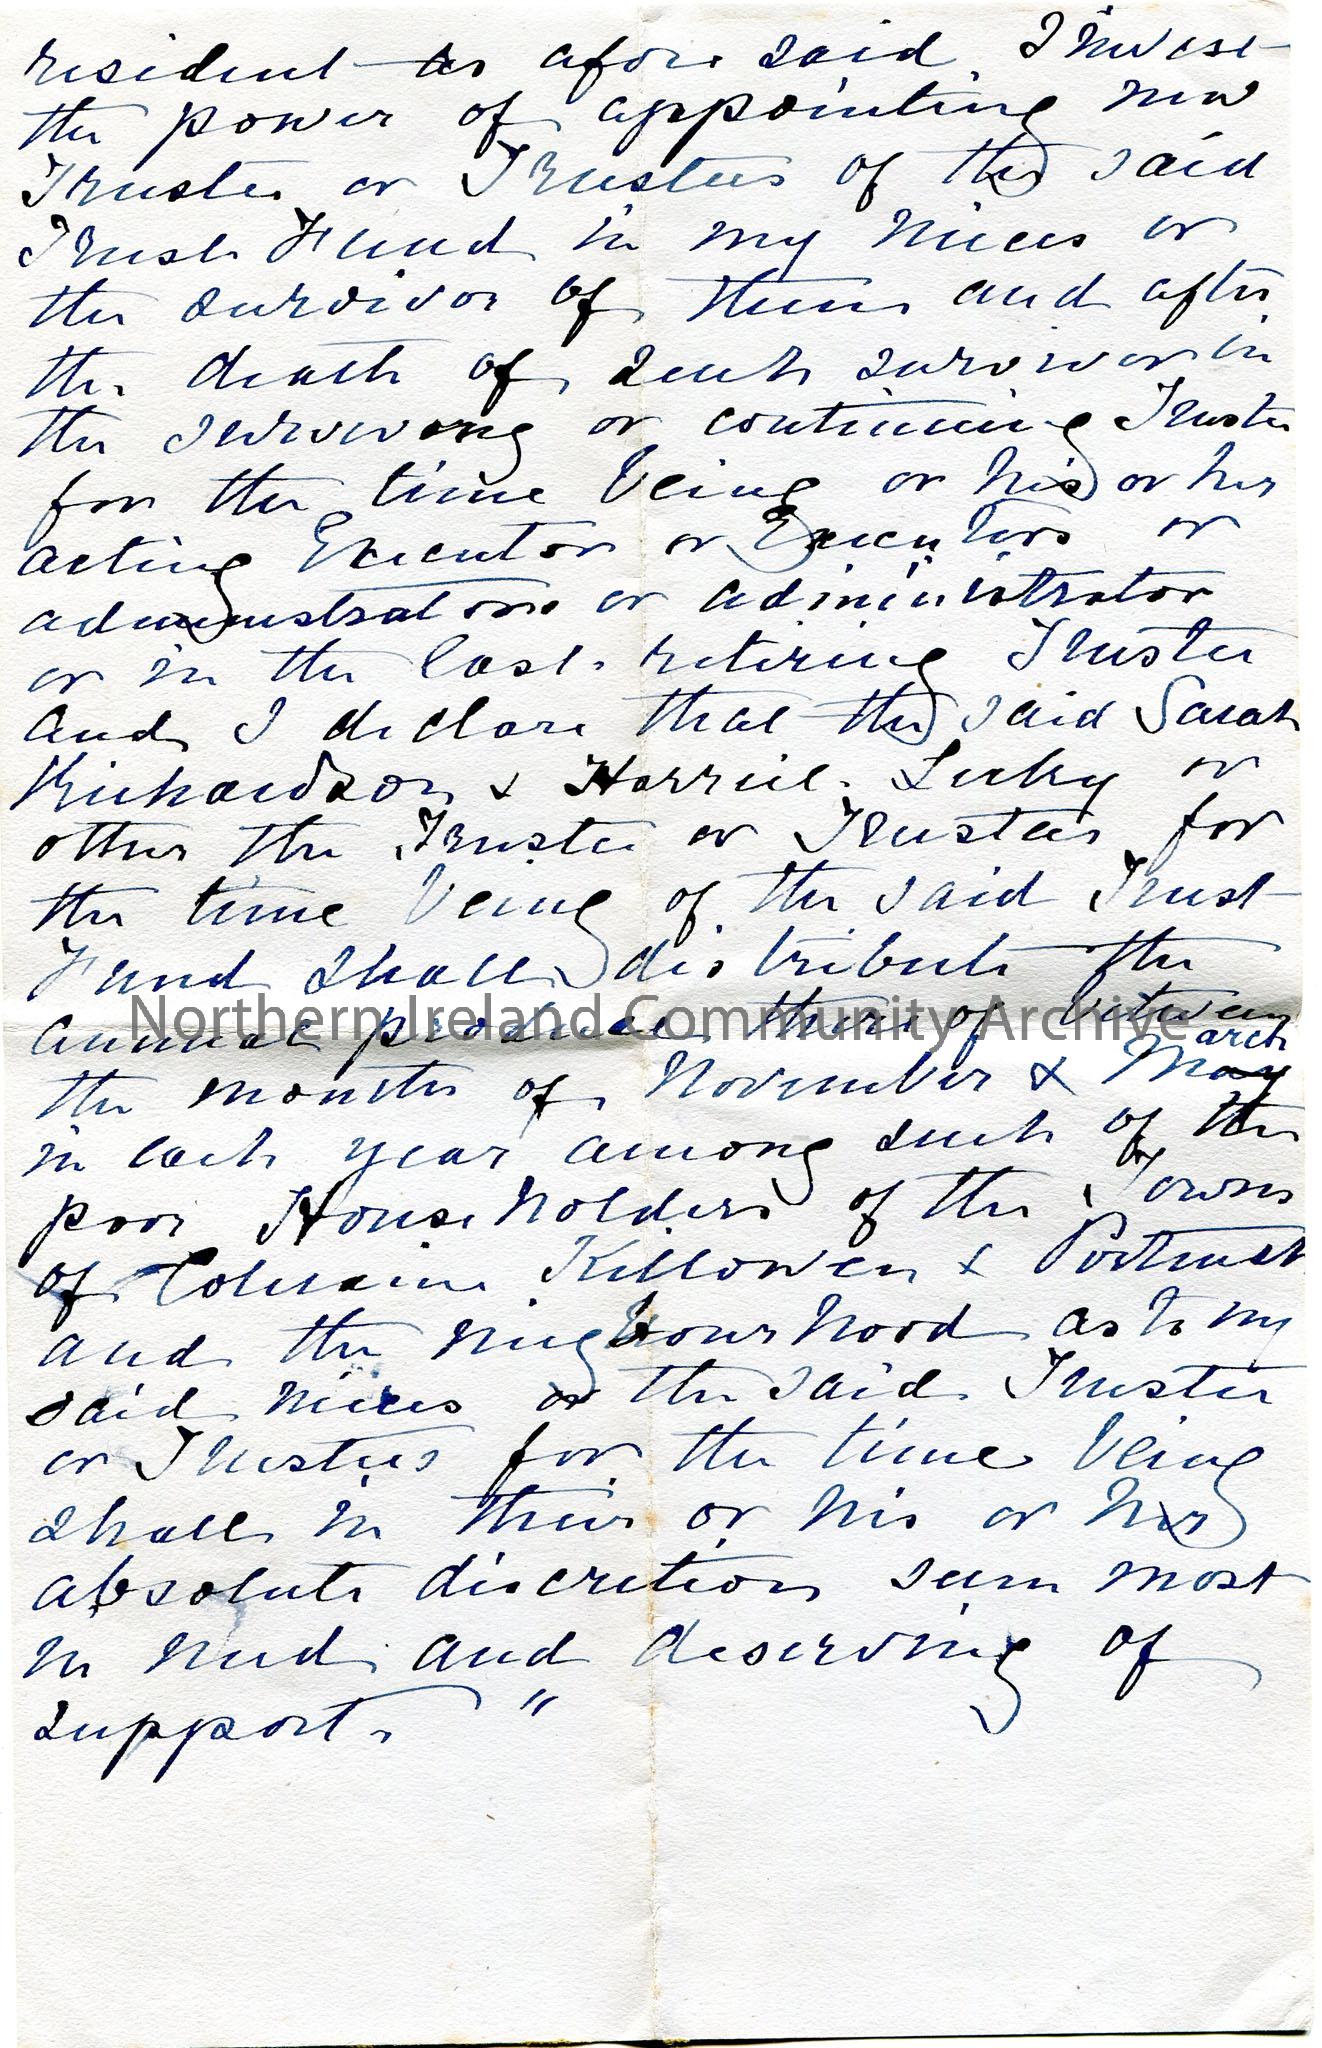 resident as afore said I invest
the power of appointing new
Trustee or Trustees of the said
Trust Fund in my nieces or
the survivor of them and after
the death of such survivor in
the surviving or continuing Trustee
for the time being or his or her
acting Executor or Executors or
administrators or administrator
or in the last retiring Trustee
and I declare that the said Sarah
Richardson & Harriet Lecky or
other the Trustee or Trustees for
the time being of the said Trust
Fund shall distribute the
annual produce thereof between
Northern Ireland Community Archive
the months of November & March
in each year among such of the
poor House holders of the Towns
of Coleraine Killowen & Portrush
and the neighbourhood as to my
said nieces or the said Trustee
or Trustees for the time being
shall in their or his or her
absolute discretion seem most
in need and deserving of
support "